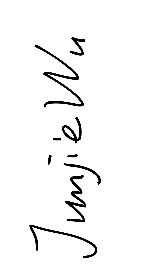 Junjie Wu